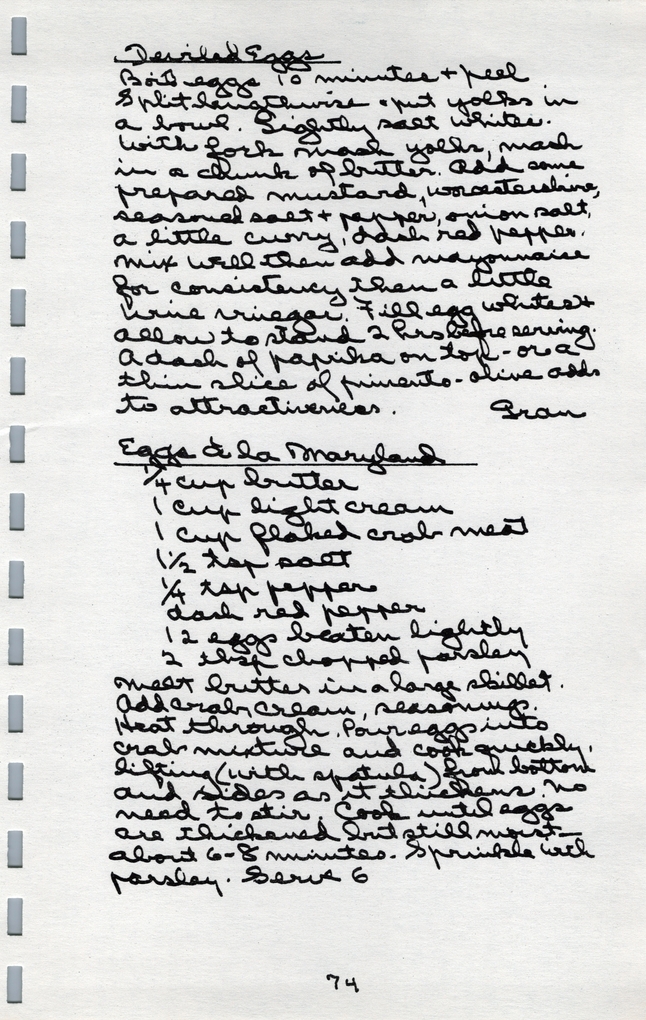 Deviled Eggs
Boil eggs 10 minutes + peel
Split lengthwise + put yolks in
a bowl. Lightly salt whites.
With fork mash yolks, mash
in a chunk of butter. Add some
prepared mustard, worcestershire,
seasoned salt + pepper, onion salt,
a little curry, dash red pepper.
Mix well then add mayonnaise
for consistency then a little
wine vinegar. Fill egg whites +
allow to stand 2 hrs before serving.
A dash of paprika on top - or a
thin slice of pimento-olive adds
to attractiveness. Gran
Eggs à la Maryland
1/4 cup butter
1 cup light cream
1 cup flaked crab meat
1 1/2 tsp salt
1/4 tsp pepper
dash red pepper
12 eggs beaten lightly
2 tbsp chopped parsley
Melt butter in a large skillet.
Add crab, cream, seasonings.
Heat through. Pour eggs into
crab mixture and cook quickly,
lifting (with spatula) from bottom
and sides as it thickens. No
need to stir. Cook until eggs
are thickened but still moist—
about 6-8 minutes. Sprinkle with
parsley. Serve 6
74